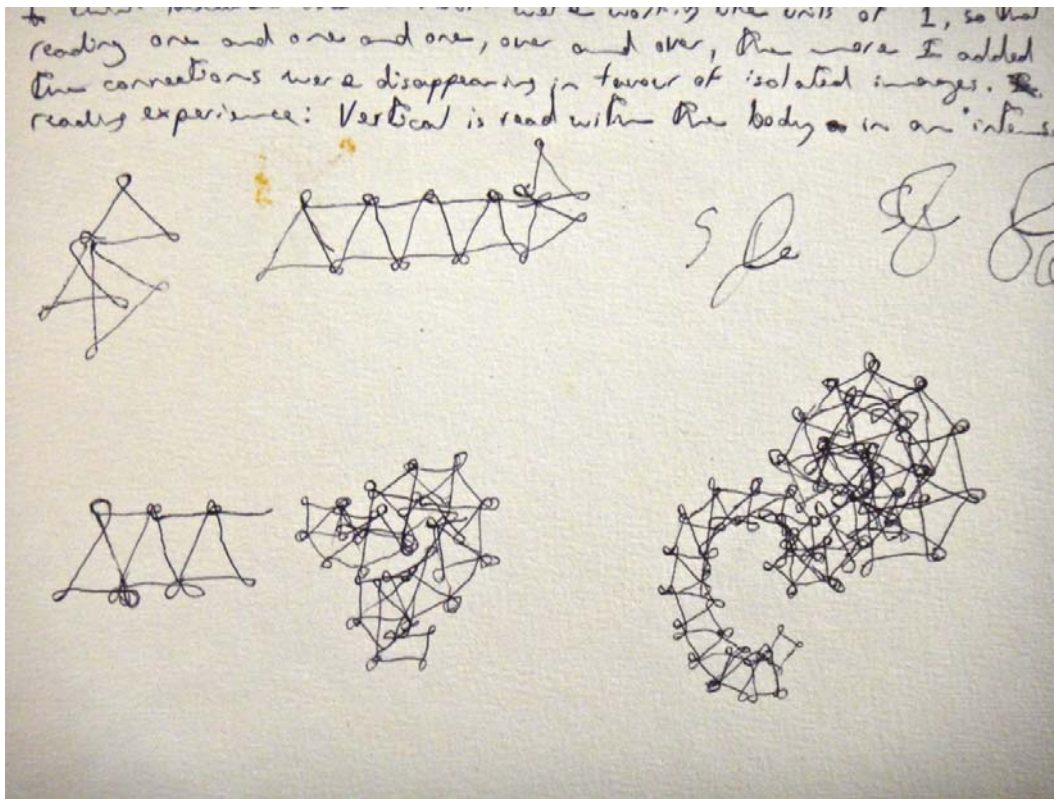 were working like units of 1, so that
reading one and one and one, over and over, the more I added
the connections were disappearing in favour of isolated images.
reading experience: Vertical is read within the body in an intens